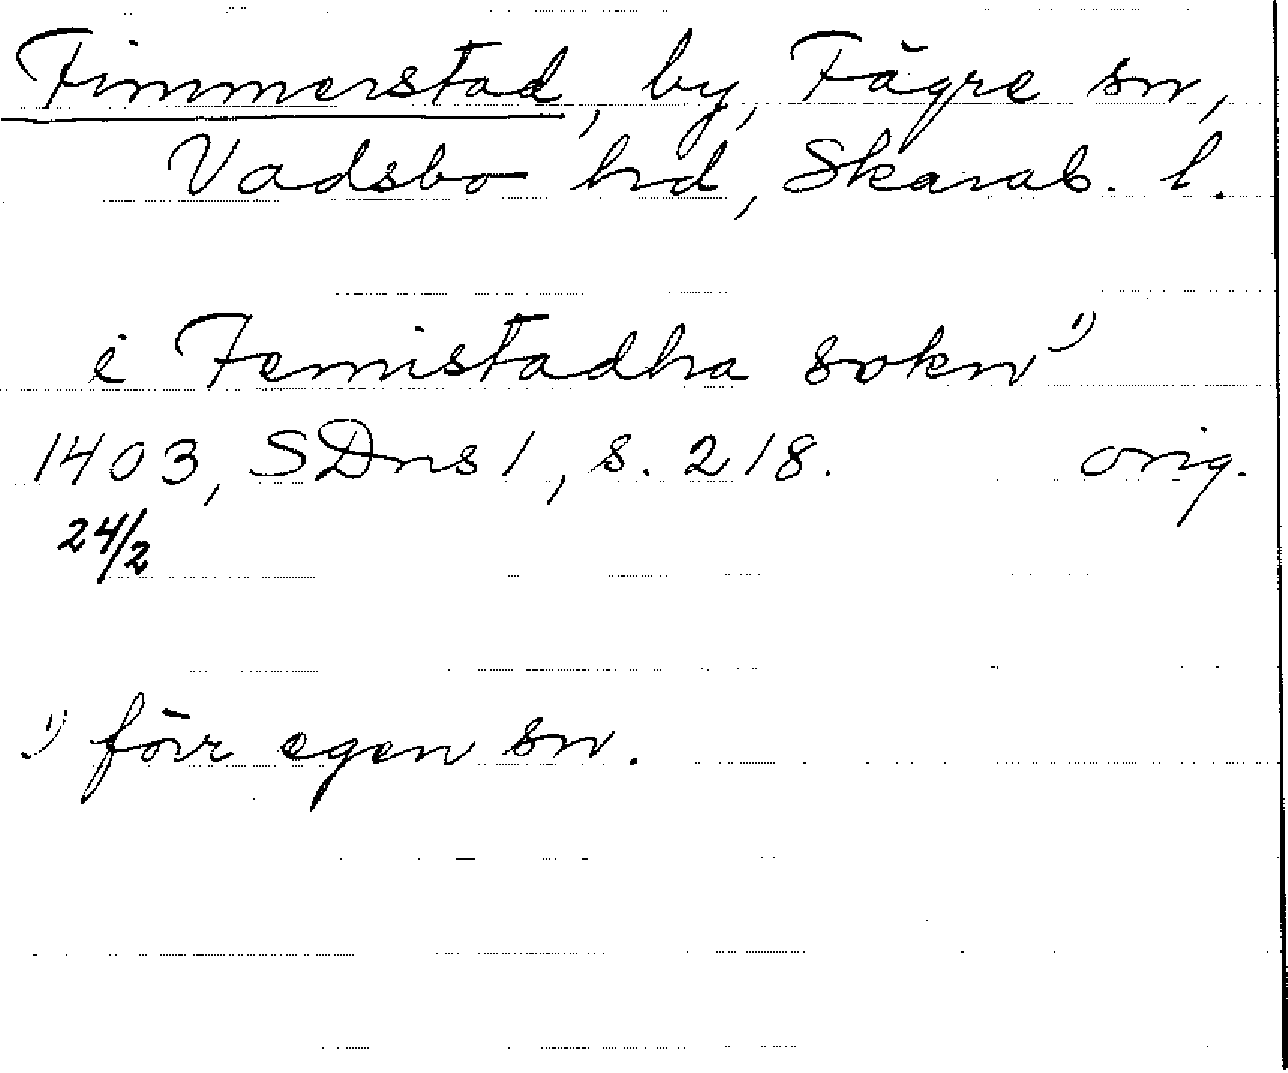 Fimmerstad, by, Fägre sn,
Vadsbo hd, Skarab. l.
i Femistadha sokn 1)
1403, SDns 1, s. 218. orig.
24/2
1) förr egen sn.